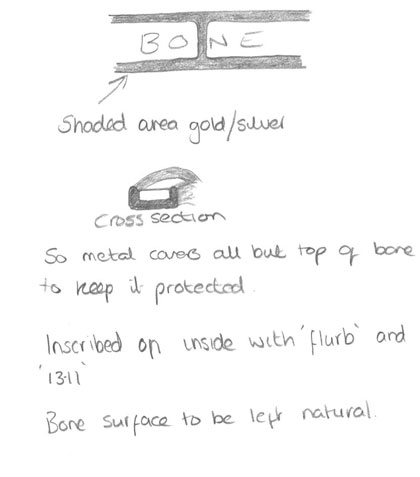 BONE
Shaded area gold/silver
Cross section
So metal covers all but top of bone
to keep it protected.
Inscribed on inside with 'flurb' and
'1311'
Bone surface to be left natural.